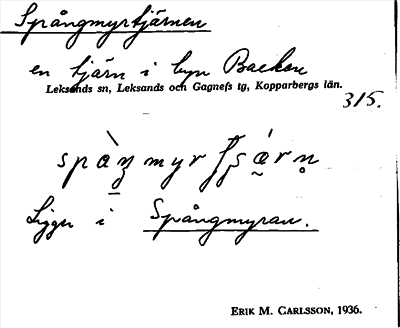 Spångmyrtjärnen
en tjärn i byn Backen
Leksands sn, Leksands och Gagnefs tg, Kopparbergs län.
315.
Ligger i Spångmyran.
ERIK M. CARLSSON, 1936.